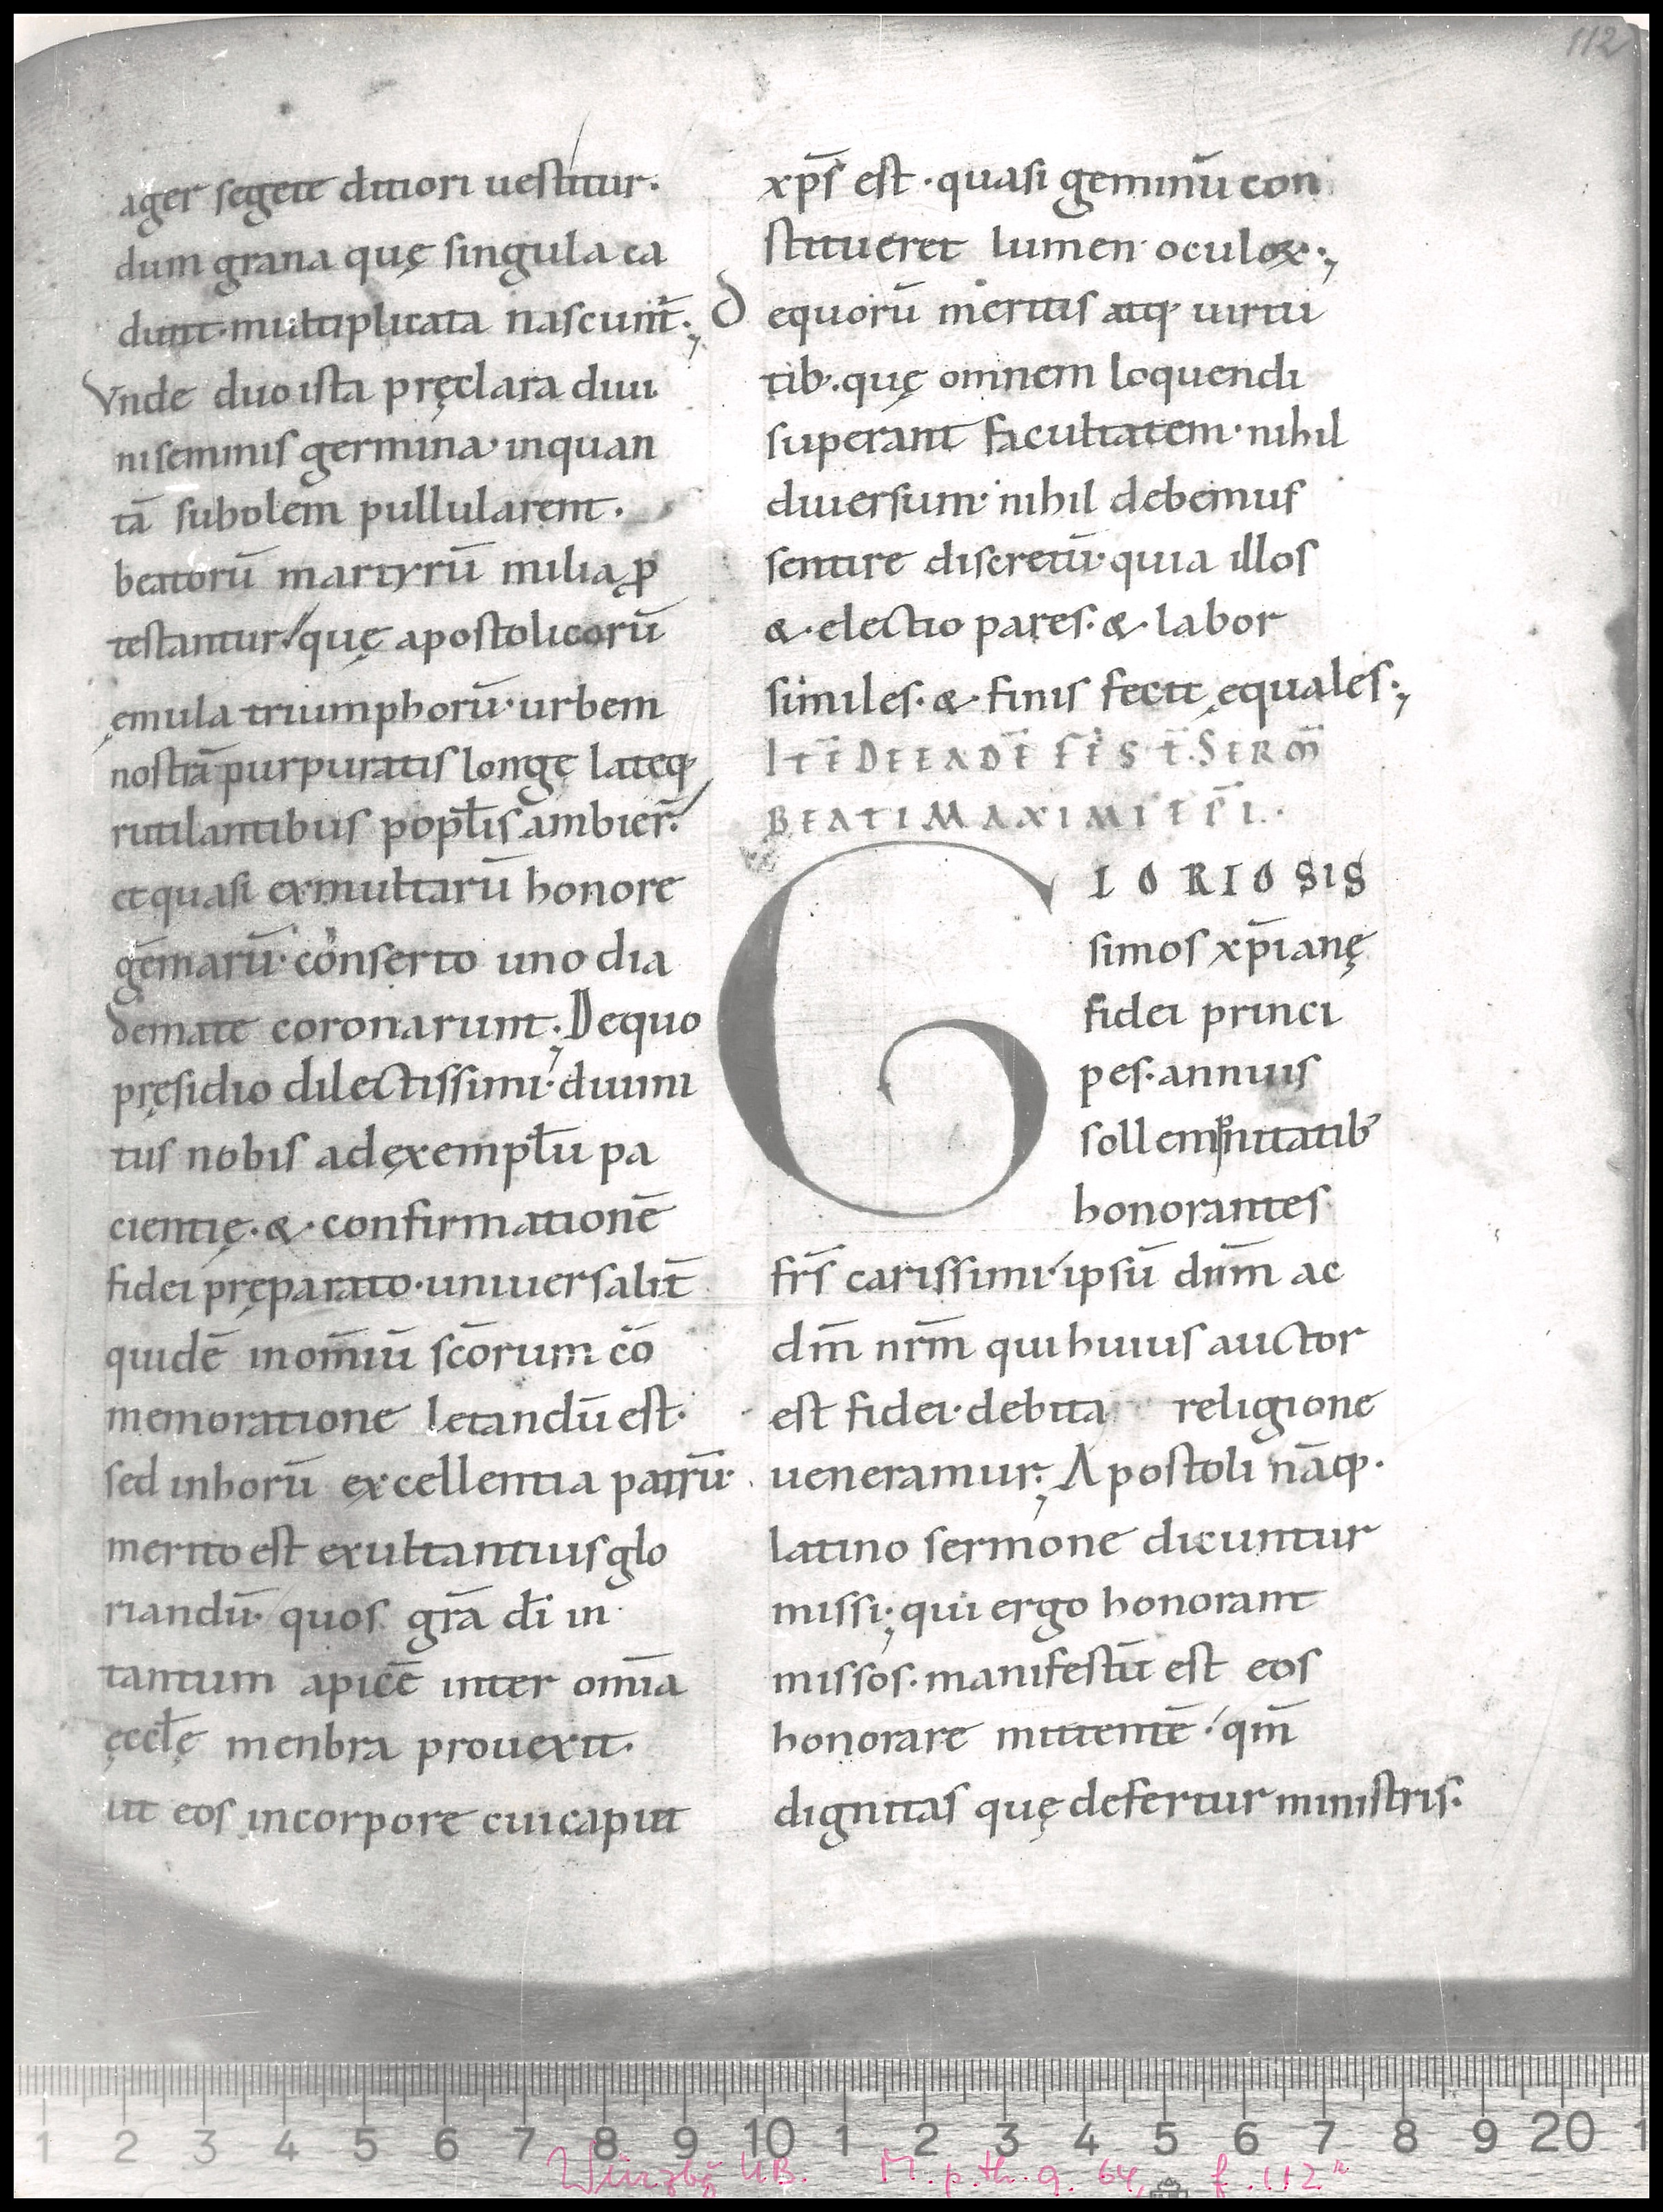 112
ager segete ditiori uestitur.
dum grana quę singula ca
dunt·multiplicata nascunt̄;
Vnde duo ista pręclara diui
ni seminis germina· inquan
tā subolem pullularent.
beatorū martyrū miliạ ꝓ
testantur/ quę apostolicorū
ęmula triumphorū· urbem
nostrā purpuratis longe lateq·
rutilantibus popł̄is ambier̄.
et quasi ex multarū honore
gēmarū· conserto uno dia
demate coronarunt; De quo
pręsidio dilectissimi· diuini
tus nobis ad exempłū pa
cientię· & · confirmationē
fidei pręparato· uniuersalit̄
quidē in om̄iū sc̄orum cō
memoratione letandū est·
sed in horū excellentia patrū·
merito est exultantius glo
riandū· quos gr̄a dī in
tantum apicē inter om̄ia
ęccłę menbra prouexit.
ut eos in corpore cui caput
xp̄s est · quasi geminū con
stitueret lumen oculoꝝ;
De quorū meritis atq· uirtu
tib·. quę omnem loquendi
superant facultatem· nihil
diuersum· nihil debemus
sentire discretū· quia illos
& · electio pares· & · labor
similes· & · finis fecit ęquales;
ITĒ DE EADĒ FES T̄. SERM̄
BEATI MAXIMI EP̄I.
G LORIOSIS
simos xp̄ianę
fidei princi
pes· annuis
sollempnitatib·
honorantes
fr̄s carissimi/ ipsū dn̄m ac
dm̄ nr̄m qui huius auctor
est fidei· debita religione
ueneramur; Apostoli nāq·.
latino sermone dicuntur
missi; qui ergo honorant
missos· manifestū est eos
honorare mittentē/ qm̄
dignitas quę defertur ministris.
1 2 3 4 5 6 7 8 9 10 1 2 3 4 5 6 7 8 9 20 1
Würzbg UB. M. p. th. q. 64, f. 112r